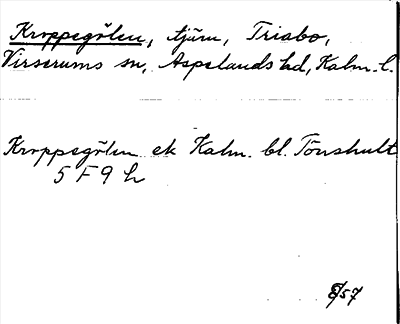 Kroppegölen, tjärn, Triabo,
Virserums sn, Aspelands hd, Kalm. l.
Kroppegölen ek Kalm. bl. Tönshult
5 F 9 h
57